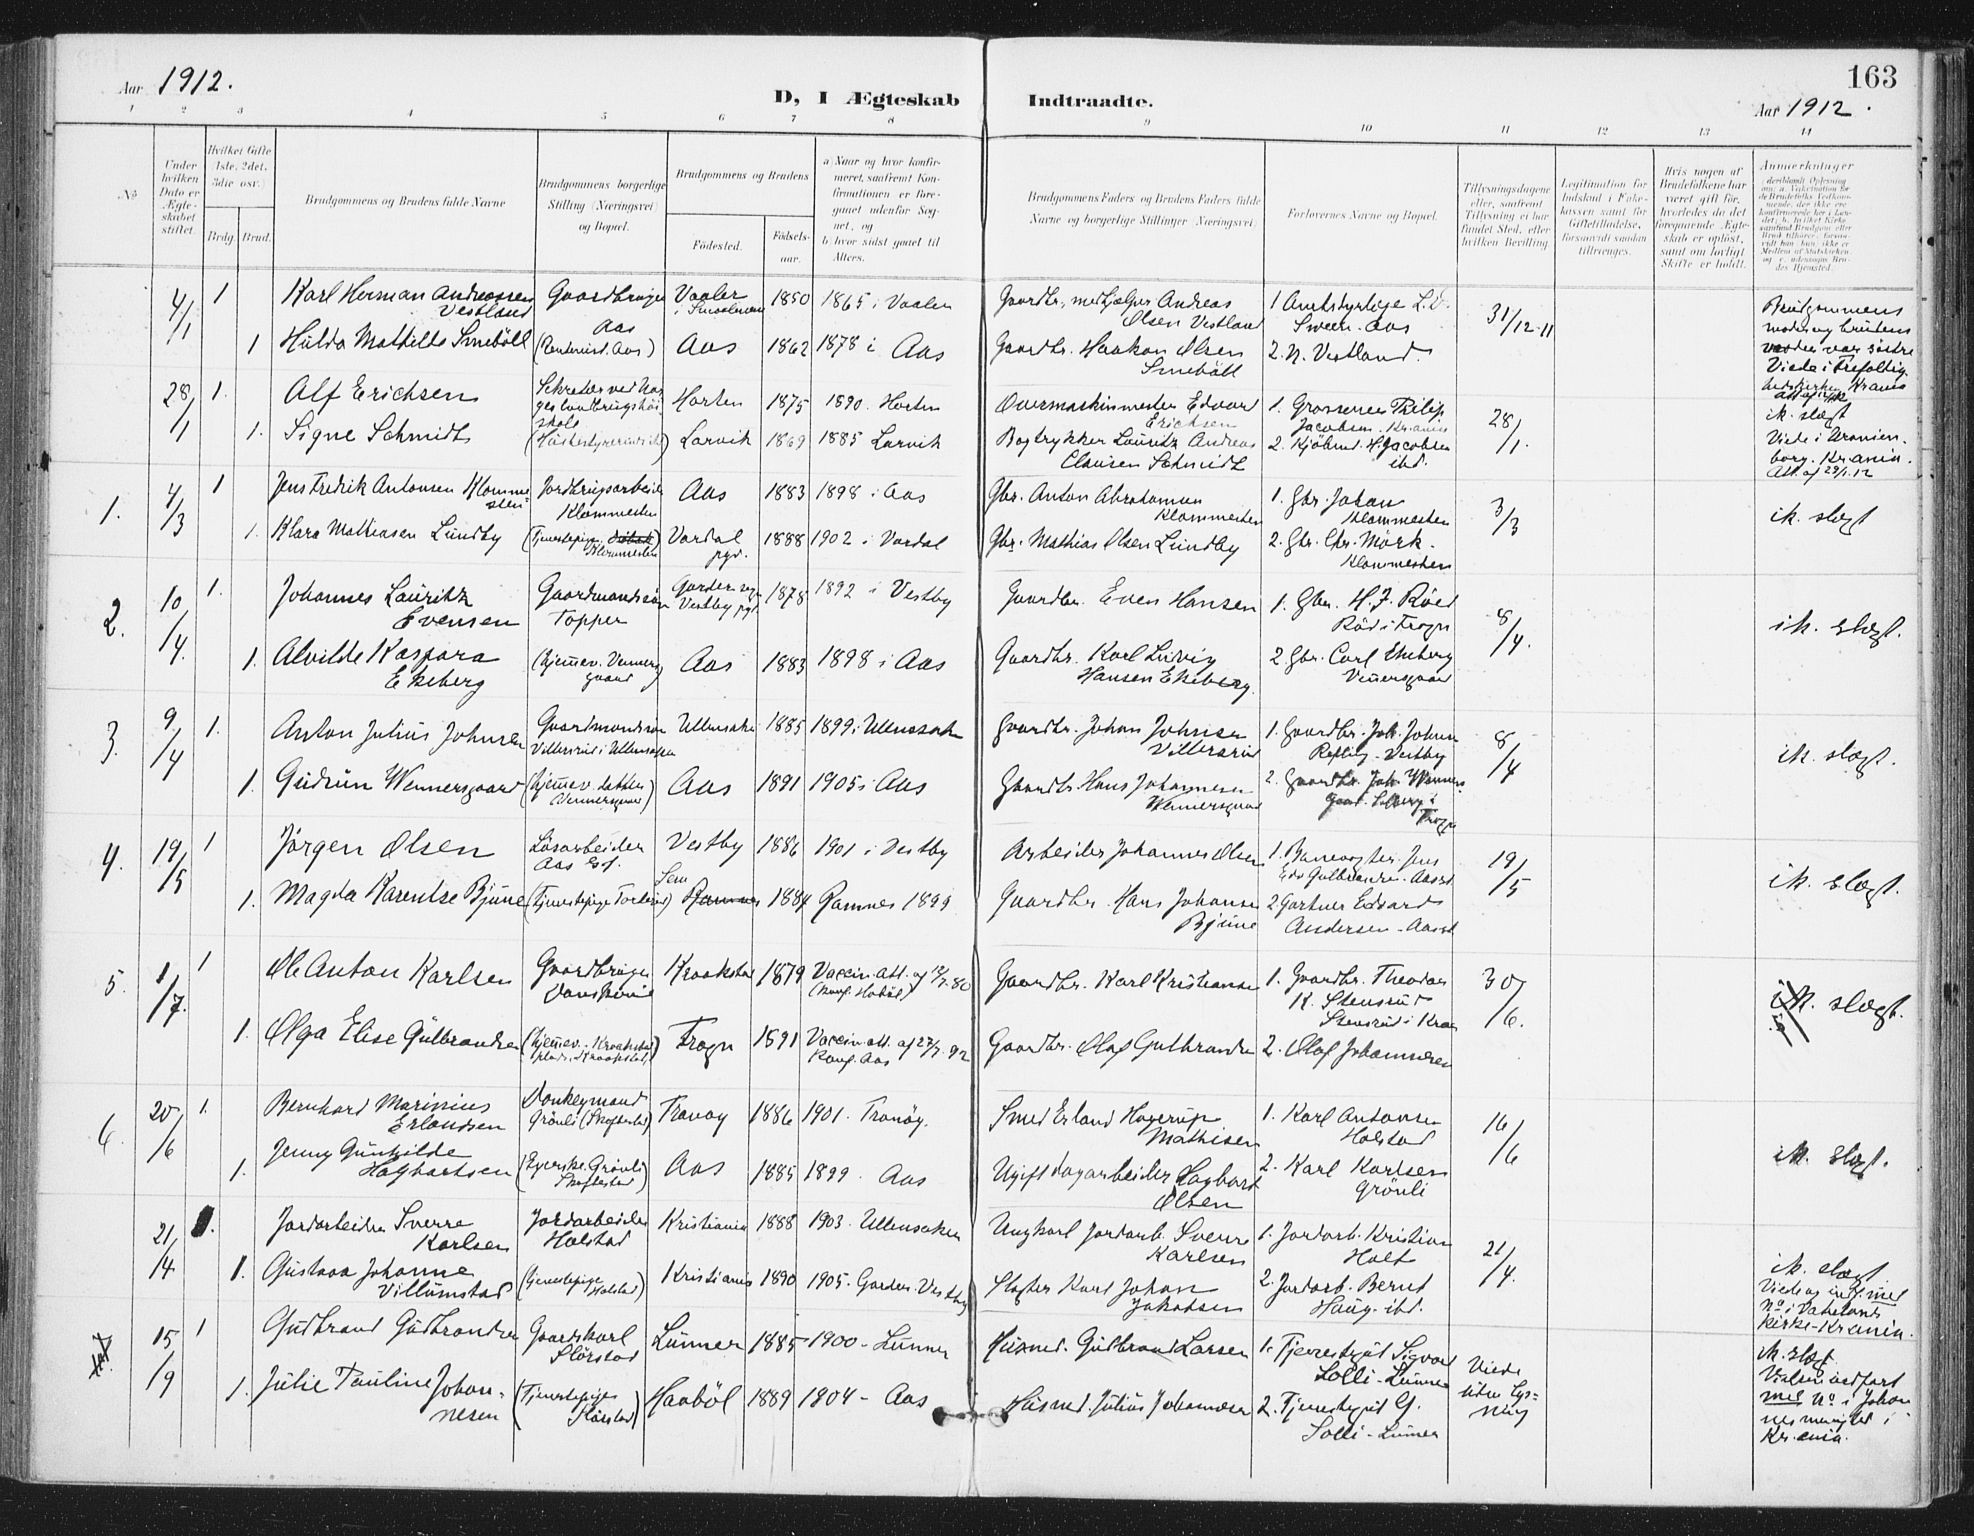 163
Aar 1912.
D, I Ægteskab Indtraadte.
Aar 1912.
1 2 3 4 5 6 7 8 9 10 11 12 13 14
No.
Under hvilken Dato er Ægteskabet stiftet.
Hvilket Gifte (1ste, 2det, 3die osv.)
Brdg. Brud.
Brudgommens og Brudens fulde Navne
Brudgommens borgerlige Stilling (Næringsvei) og Bopæl.
Brudgommens og Brudens
Fødested.
Fødselsaar.
a) Naar og hvor konfirmeret, saafremt Konfirmationen er foregaaet udenfor Sognet, og
b) hvor sidst gaaet til Alters.
Brudgommens Faders og Brudens Faders fulde Navne og borgerlige Stillinger (Næringsvei)
Forlovernes Navne og Bopæl.
Tillysningsdagene eller, saafremt Tillysning ei har fundet Sted, efter hvilken Bevilling
Legitimation for Indskud i Enkekassen samt for Giftetilladelse, forsaavidt saadan tiltrænges.
Hvis nogen af Brudefolkene har været gift før, hvorledes da det foregaaende Ægteskab er opløst, samt om lovligt Skifte er holdt.
Anmærkninger
4/1 1 Karl Herman Andreassen Vestland Gaardbruger Aas Vaaler i Smaalenene 1850 1865 i Vaaler Gaardbr., medhjælper Andreas Olsen Vestland 1 Amtsbestyrer L. D. Sween - Aas 31/12-11 Brudgommens moder og brudens moder var søstre
1 Hulda Mathilde Smebøll Aas 1862 1878 i Aas Gaardbr. Haakon Olsen Smebøll 2. N. Vestland. Viede i Trefoldighedskirken Krania
28/1 1. Alf Erichsen Sekretær ved Norges landbrugshøiskole Horten 1875 1890. Horten Overmaskinmester Edvard Erichsen 1. Grosserer Philip Jacobsen. Krania 28/1. ik. slegt
1. Signe Schmidt Larvik 1869 1885 Larvik Bogtrykker Lauritz Andreas Clausen Schmidt 2. Kjøbmd. H. Jacobsen ibd. Viede i Uranienborg. Krania. Att. af 29/1.12
1. 4/3 1 Jens Fredrik Antonsen Klommesten Jordbrugsarbeider Klommesten Aas 1883 1898 i Aas Gbr. Anton Abrahamsen Klommesten 1. Gbr. Johan Klommesten 3/3 ik. slegt
1. Klara Mathiasen Lundby (Tjenestepige Klommesten) Vardal pgd. 1888 1902 i Vardal Gbr. Mathias Olsen Lundby 2. Gbr. Chr. Mørk. Klommesten
2. 10/4. 1. Johannes Lauritz Evensen Gaardmandssøn Topper Garder sogn Vestby pgd 1878 1892 i Vestby Gaardbr. Even Hansen 1. Gbr. H. J. Røed Rød i Frogn 8/4. ik. slegt.
1. Alvilde Kaspara Ekeberg (hjemmev. Vennersgaard) Aas 1883 1898 i Aas Gaardbr. Karl Ludvig Hansen Ekeberg. 2. Gbr. Carl Ekeberg Vennersgaard
3. 9/4 1. Anton Julius Johnsen Gaardmandssøn Villersrud i Ullensaker Ullensaker 1885 1899 i Ullensaker Gaardbr. Johan Johnsen Villersrud 1. Gaardbr. Joh. Johnsen - Vestby 8/4 ik. slegt.
1. Gudrun Wennersgaard (hjemmev. Vennersgaard) Aas 1891 1905 i Aas Gaardbr. Hans Johannesen Wennersgaard 2. Gaardbr. Joh. Wennersgaard. Solberg i Frogn
4. 19/5 1 Jørgen Olsen Løsarbeider Aas Vestby 1886 1901 i Vestby Arbeider Johannes Olsen 1. Banevogter Jens Gulbrandsen. Aas 19/5 ik. slegt.
1. Magda Karentse Bjune (Tjenestepige) Sem Ramnes 1884 Ramnes 1899 Gaardbr. Hans Johansen Bjune 2. Gartner Edvard Andersen - Aas
5. 1/7. 1 Ole Anton Karlsen Gaardbruger Kraakstad 1879 Vaccin. att. af 80 (konf. Hobøl) Gaardbr. Karl Kristiansen 1. Gaardbr. Theodor K. Stensrud Stensrud i Kraa 30/6. ik. slegt.
1. Olga Elise Gulbrandsen (hjemmev. Kraakstad) Frogn 1891 Vaccin. att. af 27/7.92 Konf. Aas Gaardbr. Olaf Gulbrandsen 2. Olaf Johannesen
6. 20/6 1. Bernhard Marinius Erlandsen Donkeymand Grønli (Skoftestad) Tranøy 1886 1901. Tranøy. Smed Erland Hagerup Mathisen 1. Karl Antonsen Holstad 16/6 ik. slegt.
1. Jenny Gunhilde Hagbartsen (Syerske. Grønli Skoftestad) Aas 1885 1899 Aas Ugift dagarbeider Hagbart Olsen 2. Karl Karlsen Grønli
21/4 1. Jordarbeider Sverre Karlsen Jordarbeider Holstad Kristiania 1888 1903. Ullensaker Ungkarl jordarb. Sverre Karlsen 1. Jordarb. Kristian Holt 21/4. ik. slegt
1. Gustava Johanne Villumstad (Tjenestepige Holstad) Kristiania 1890 1905. Garder. Vestby Slagter Karl Johan Jakobsen 2. Jordarb. Bernt Haug. ibd. Viede og indf. med No. i Vaterlands Kirke - Krania.
15/9 1 Gudbrand Gudbrandsen Gaardskarl Størstad Lunner 1885 1900 - Lunner Husmd. Gudbrand Larsen 1. Tjenestegut Sigvard Solli - Lunner Viede uden lysning ik. slegt.
1. Julie Pauline Johannesen (Tjenestepige Størstad) Haabøl 1889 1904 - Aas Husmd. Julius Johannesen 2. Tjenestegut G. Solli - Lunner Vielsen indført med No. i Johannesmenighed i Kr.ania.